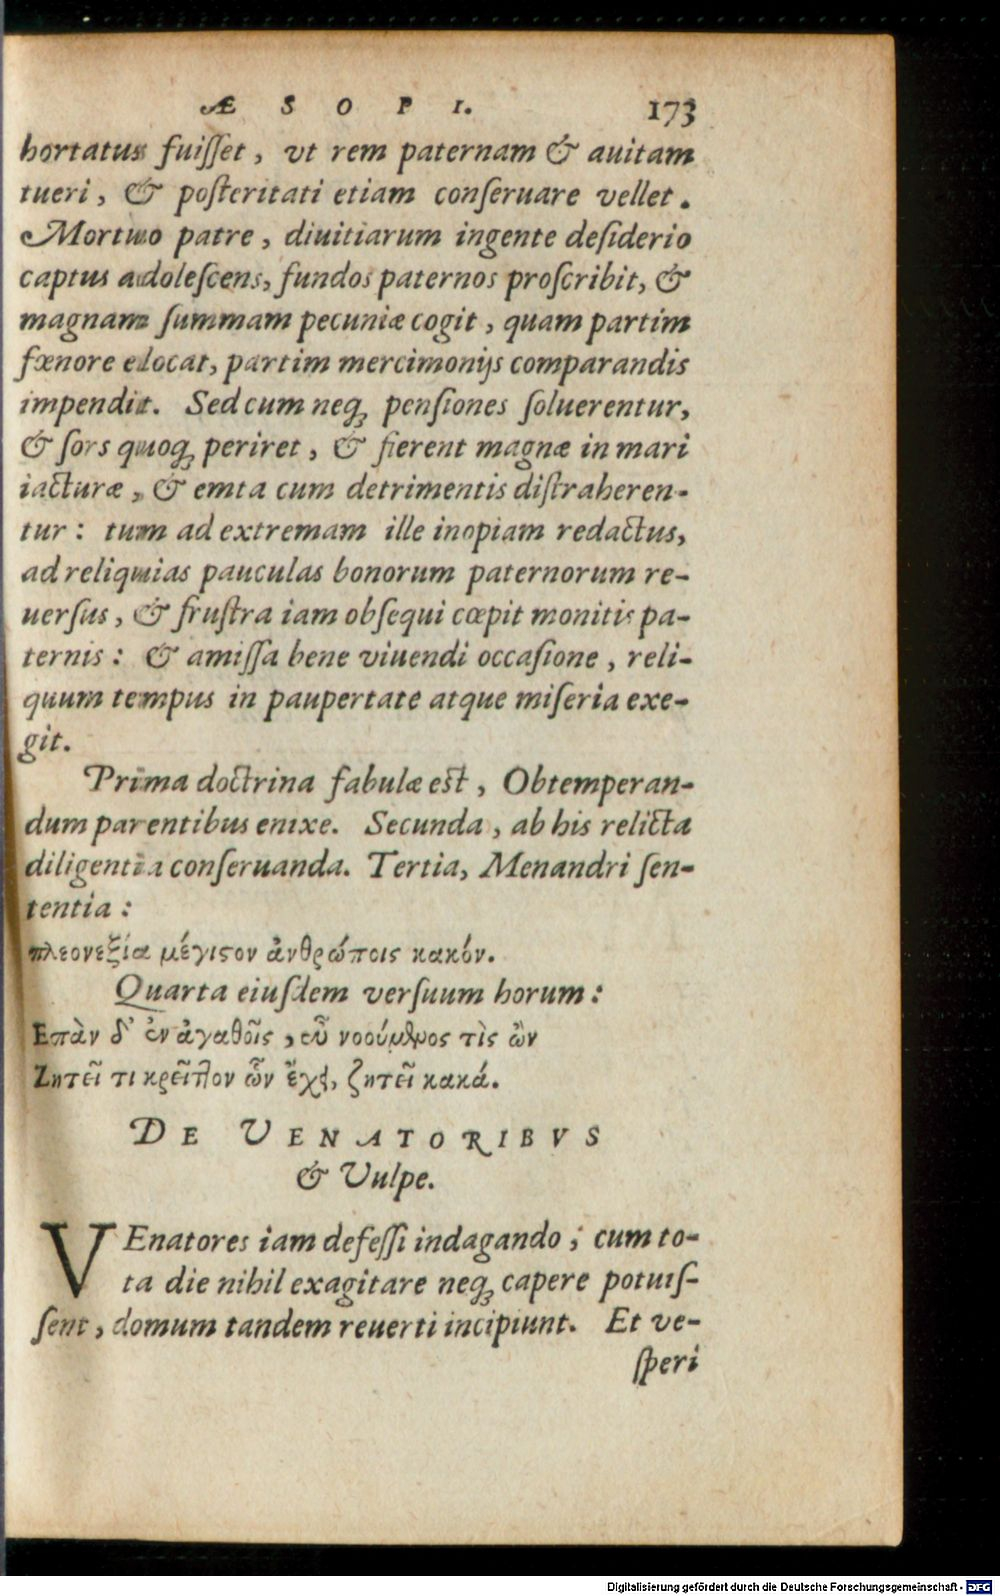 ÆSOPI. 173
hortatus fuisset, vt rem paternam & auitam
tueri, & posteritati etiam conseruare vellet.
Mortuo patre, diuitiarum ingente desiderio
captus adolescens, fundos paternos proscribit, &
magnam summam pecuniæ cogit, quam partim
fœnore elocat, partim mercimonijs comparandis
impendit. Sed cum neq; pensiones soluerentur,
& sors quoq; periret, & fierent magnæ in mari
iacturæ, & emta cum detrimentis distraheren-
tur: tum ad extremam ille inopiam redactus,
ad reliquias pauculas bonorum paternorum re-
uersus, & frustra iam obsequi cœpit monitis pa-
ternis: & amissa bene viuendi occasione, reli-
quum tempus in paupertate atque miseria exe-
git.
Prima doctrina fabulæ est, Obtemperan-
dum parentibus enixe. Secunda, ab his relicta
diligentia conseruanda. Tertia, Menandri sen-
tentia:
πλεονεξία μέγιστον ἀνθρώποις κακόν.
Quarta eiusdem versuum horum:
Επὰν δ' ἐν ἀγαθοῖς, εὖ νοούμενος τὶς ὢν
Ζητεῖ τι κρεῖττον ὧν ἔχει, ζητεῖ κακά.
DE VENATORIBVS
& Vulpe.
VEnatores iam defessi indagando; cum to-
ta die nihil exagitare neq; capere potuis-
sent, domum tandem reuerti incipiunt. Et ve-
speri
Digitalisierung gefördert durch die Deutsche Forschungsgemeinschaft - DFG